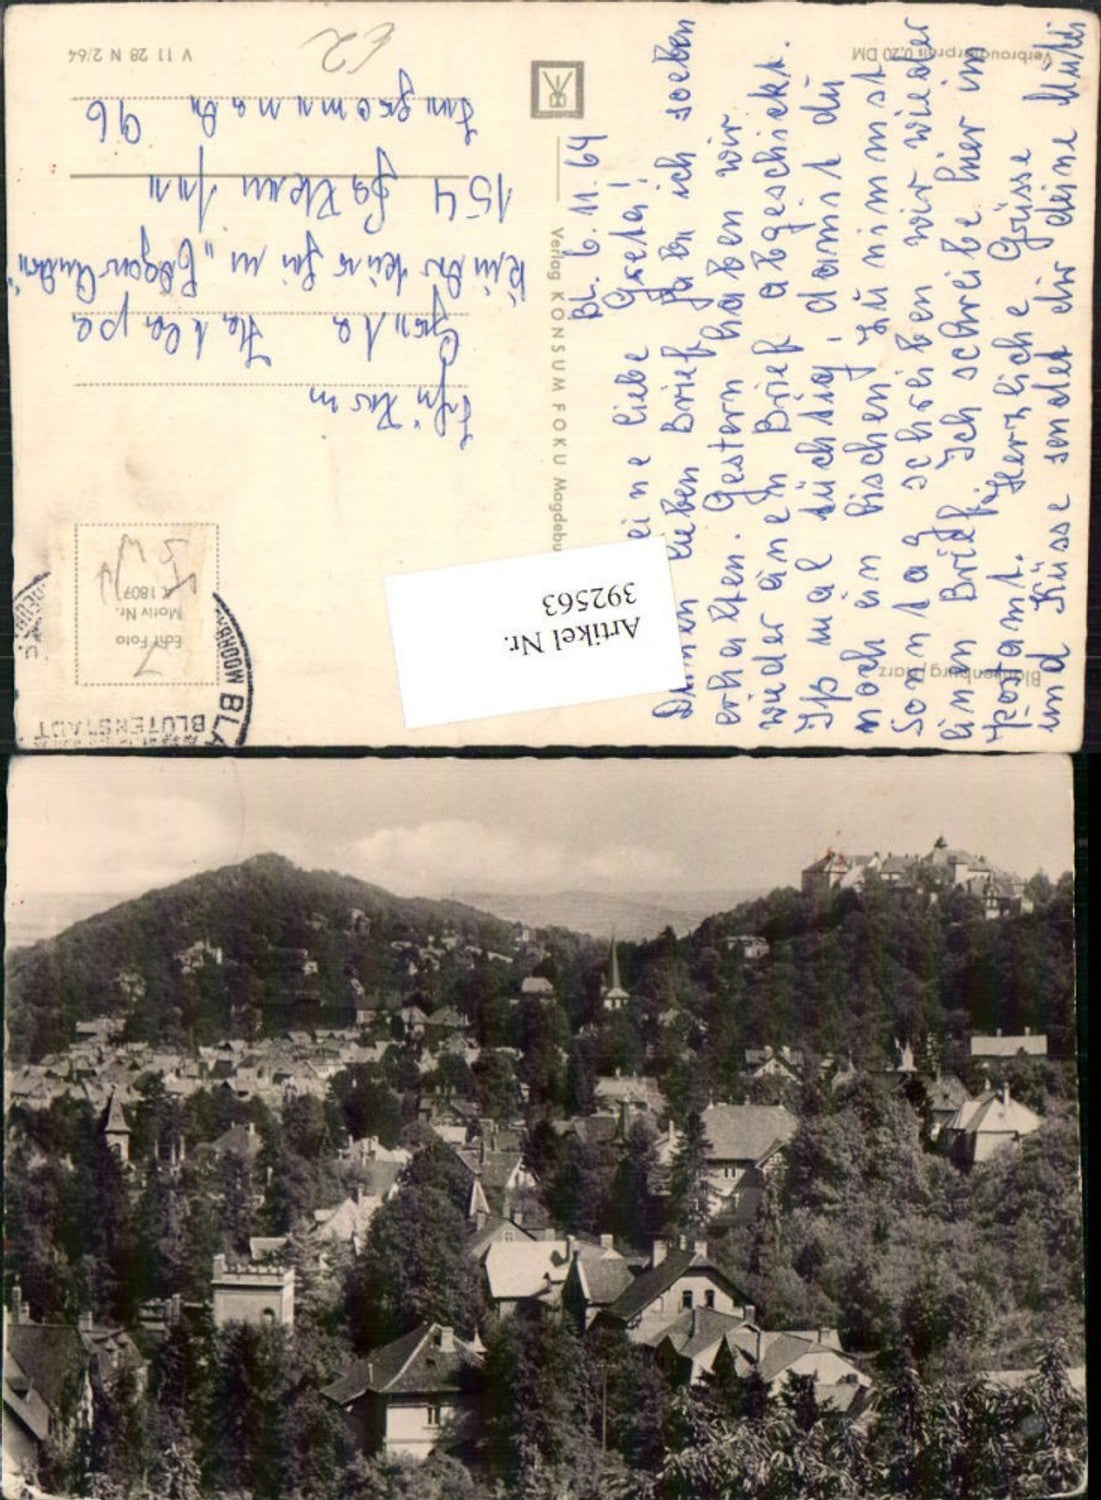 Bl. 6. 11. 64
eine liebe Greta!
Deinen lieben Brief hab ich soeben
erhalten. Gestern haben wir
wieder einen Brief abgeschickt.
Iß mal tüchtig, damit du
noch ein bischen zunimmst
Sonntag schreiben wir wieder
einen Brief. Ich schreibe hier im
Postamt. Herzliche Grüsse
und Küsse sendet dir deine Mutti
Greta
154
96
Verlag KONSUM FOKU Magdebu
V 11 28 N 2/64
Verbraucherpreis 0,20 DM
Blankenburg/Harz
Echt Foto
Motiv Nr.
A 1807
BLÜTENSTADT
Artikel Nr.
392563